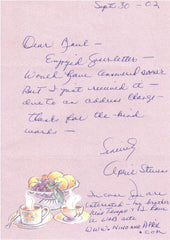 Sept. 30 - 02
Dear Paul -
Enjoyed your letter -
Would have answered sooner
But I just received it -
due to an address change -
Thanks for the kind
words -
Sincerely
April Stevens
In case you are
interested - my brother
Nino Tempo & I have
a web site
www.NinoandApril
.com